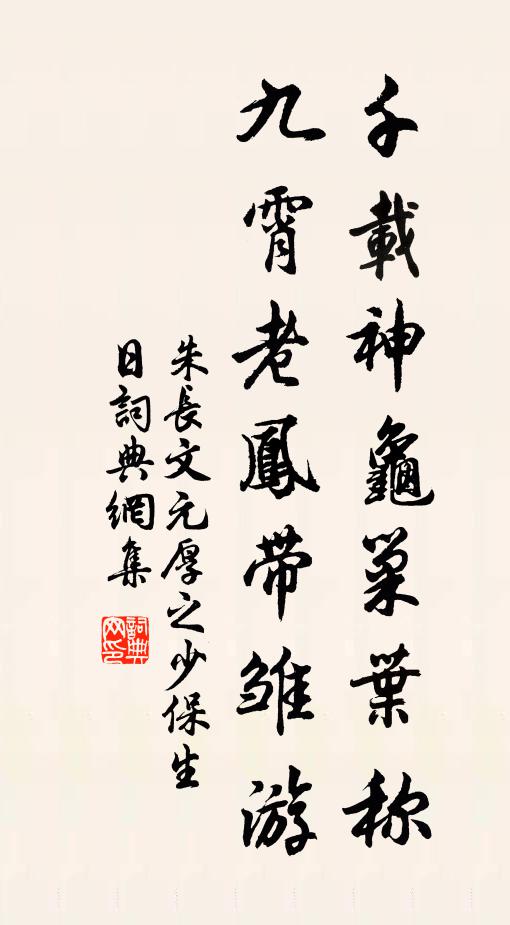 千載神龜巢葉称
九霄老鳳帶雏游
朱長文元厚之少保生
日詞典網集
詞典
网印